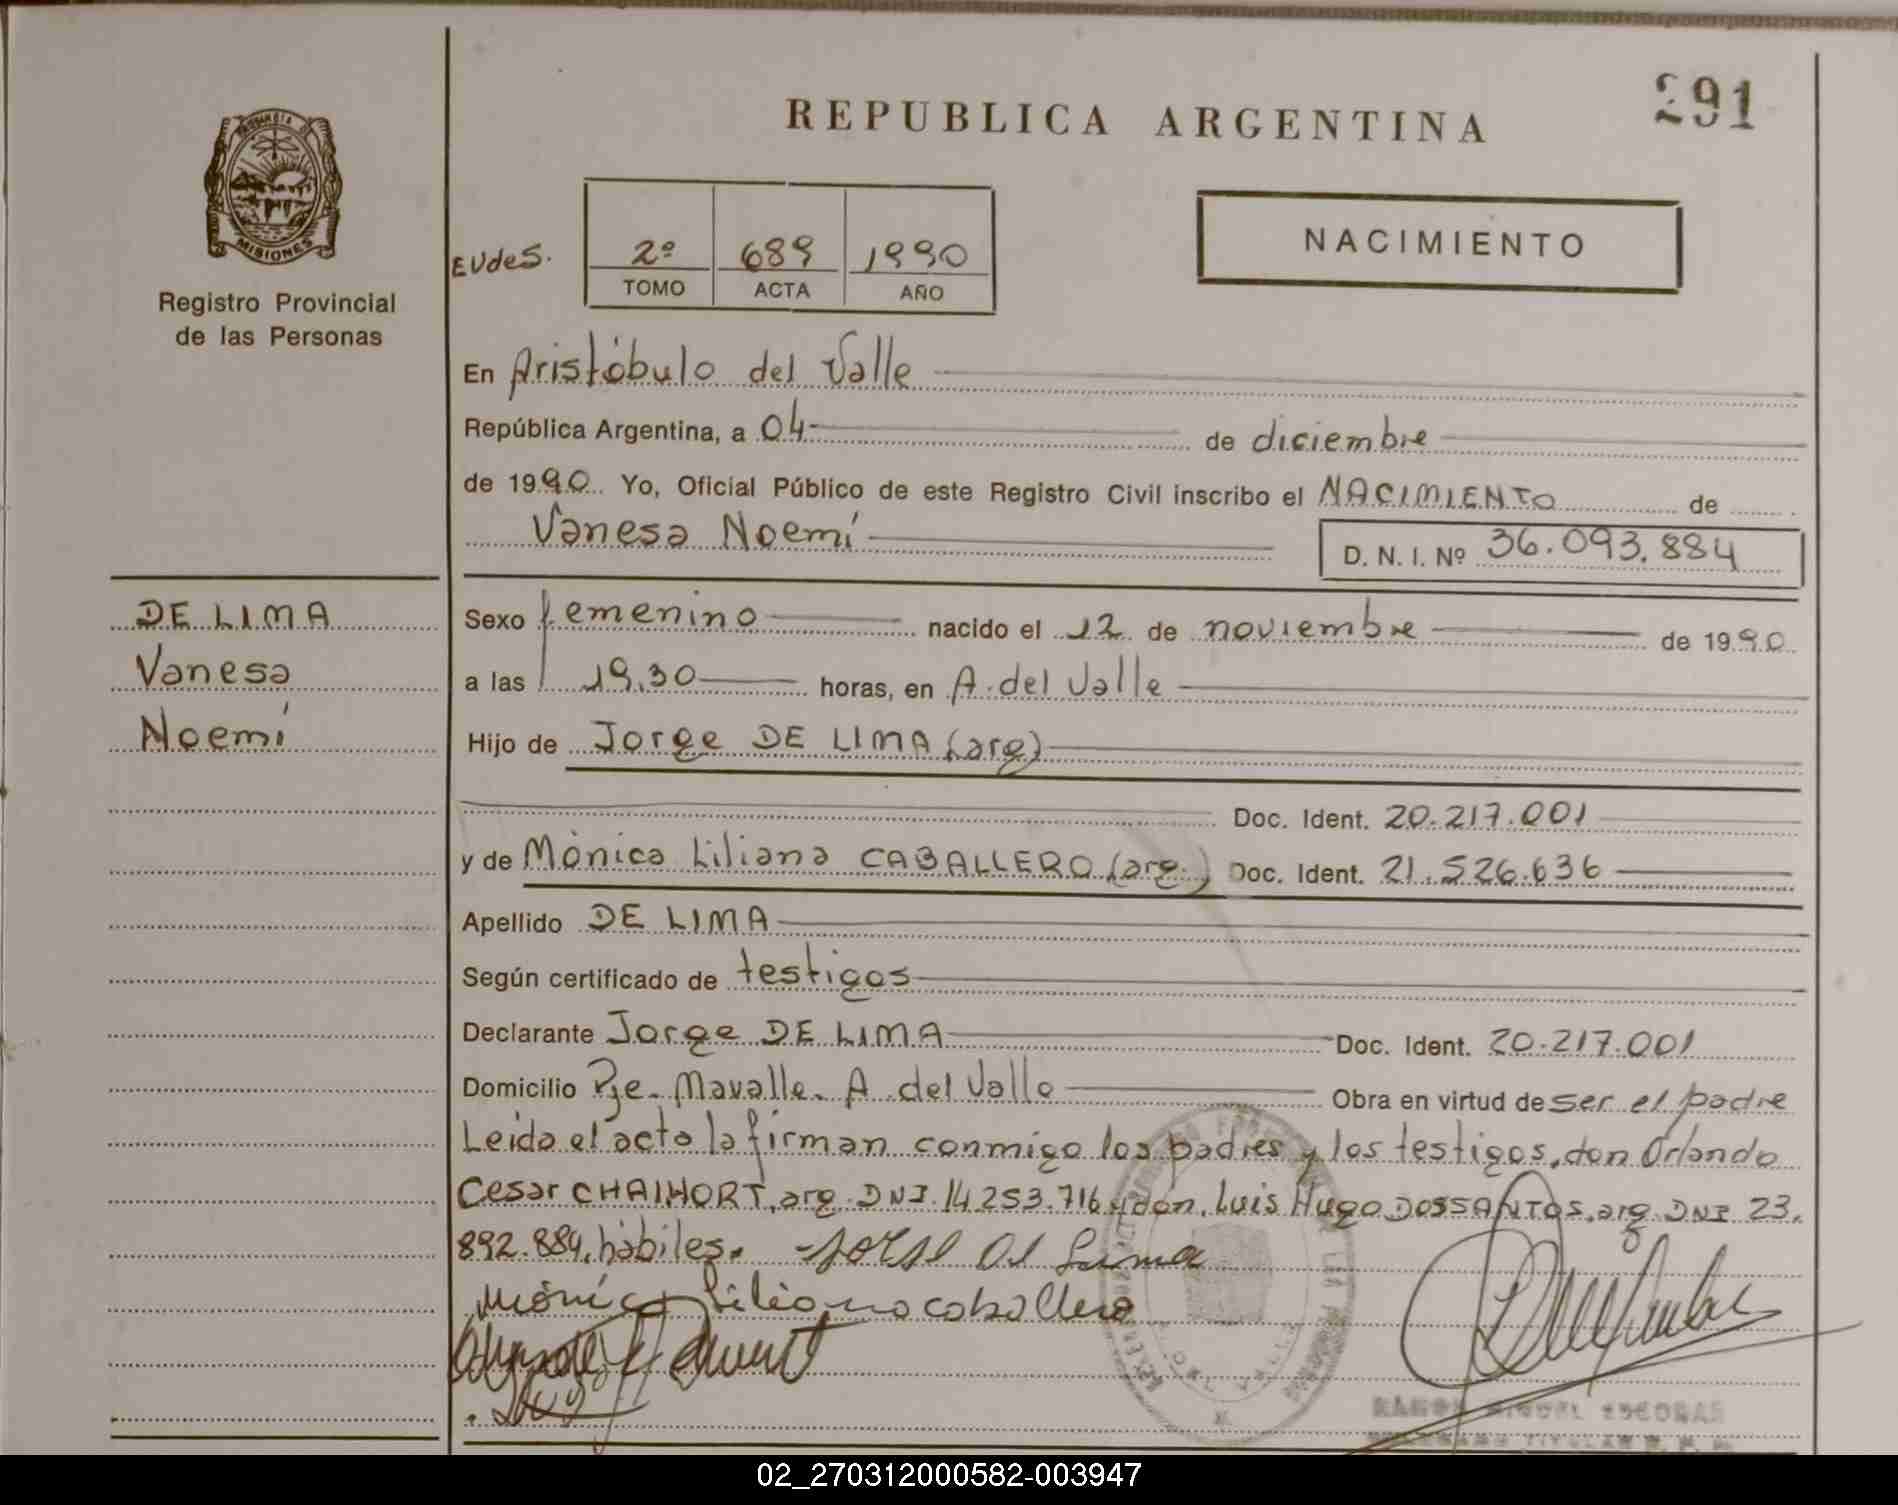 291
REPUBLICA ARGENTINA
MISIONES
Registro Provincial
de las Personas
EUdeS.
2º 689 1990
TOMO ACTA AÑO
NACIMIENTO
En Aristóbulo del Valle
República Argentina, a 04 de diciembre
de 1990 Yo, Oficial Público de este Registro Civil inscribo el NACIMIENTO de
Vanesa Noemí
D. N. I. Nº 36.093.884
DE LIMA
Vanesa
Noemí
Sexo femenino nacido el 12 de noviembre de 1990
a las 19,30 horas, en A. del Valle
Hijo de Jorge DE LIMA (arg)
Doc. Ident. 20.217.001
y de Mónica Liliana CABALLERO (arg.) Doc. Ident. 21.526.636
Apellido DE LIMA
Según certificado de testigos
Declarante Jorge DE LIMA Doc. Ident. 20.217.001
Domicilio Pje. Mavalle. A. del Valle Obra en virtud de ser el padre
Leida el acta la firman conmigo los padres y los testigos, don Orlando
Cesar CHAIHORT, arg. DNI. 14.253.716 y don Luis Hugo DOSSANTOS, arg. DNI 23.
892.884, hábiles. Jorge De Lima
Mónica Liliana caballero
RAMON MIGUEL ESCOBAR
02_270312000582-003947